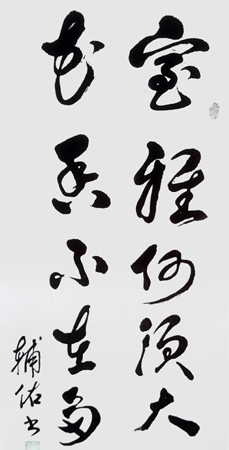 室雅何须大
花香不在多
辅佑书